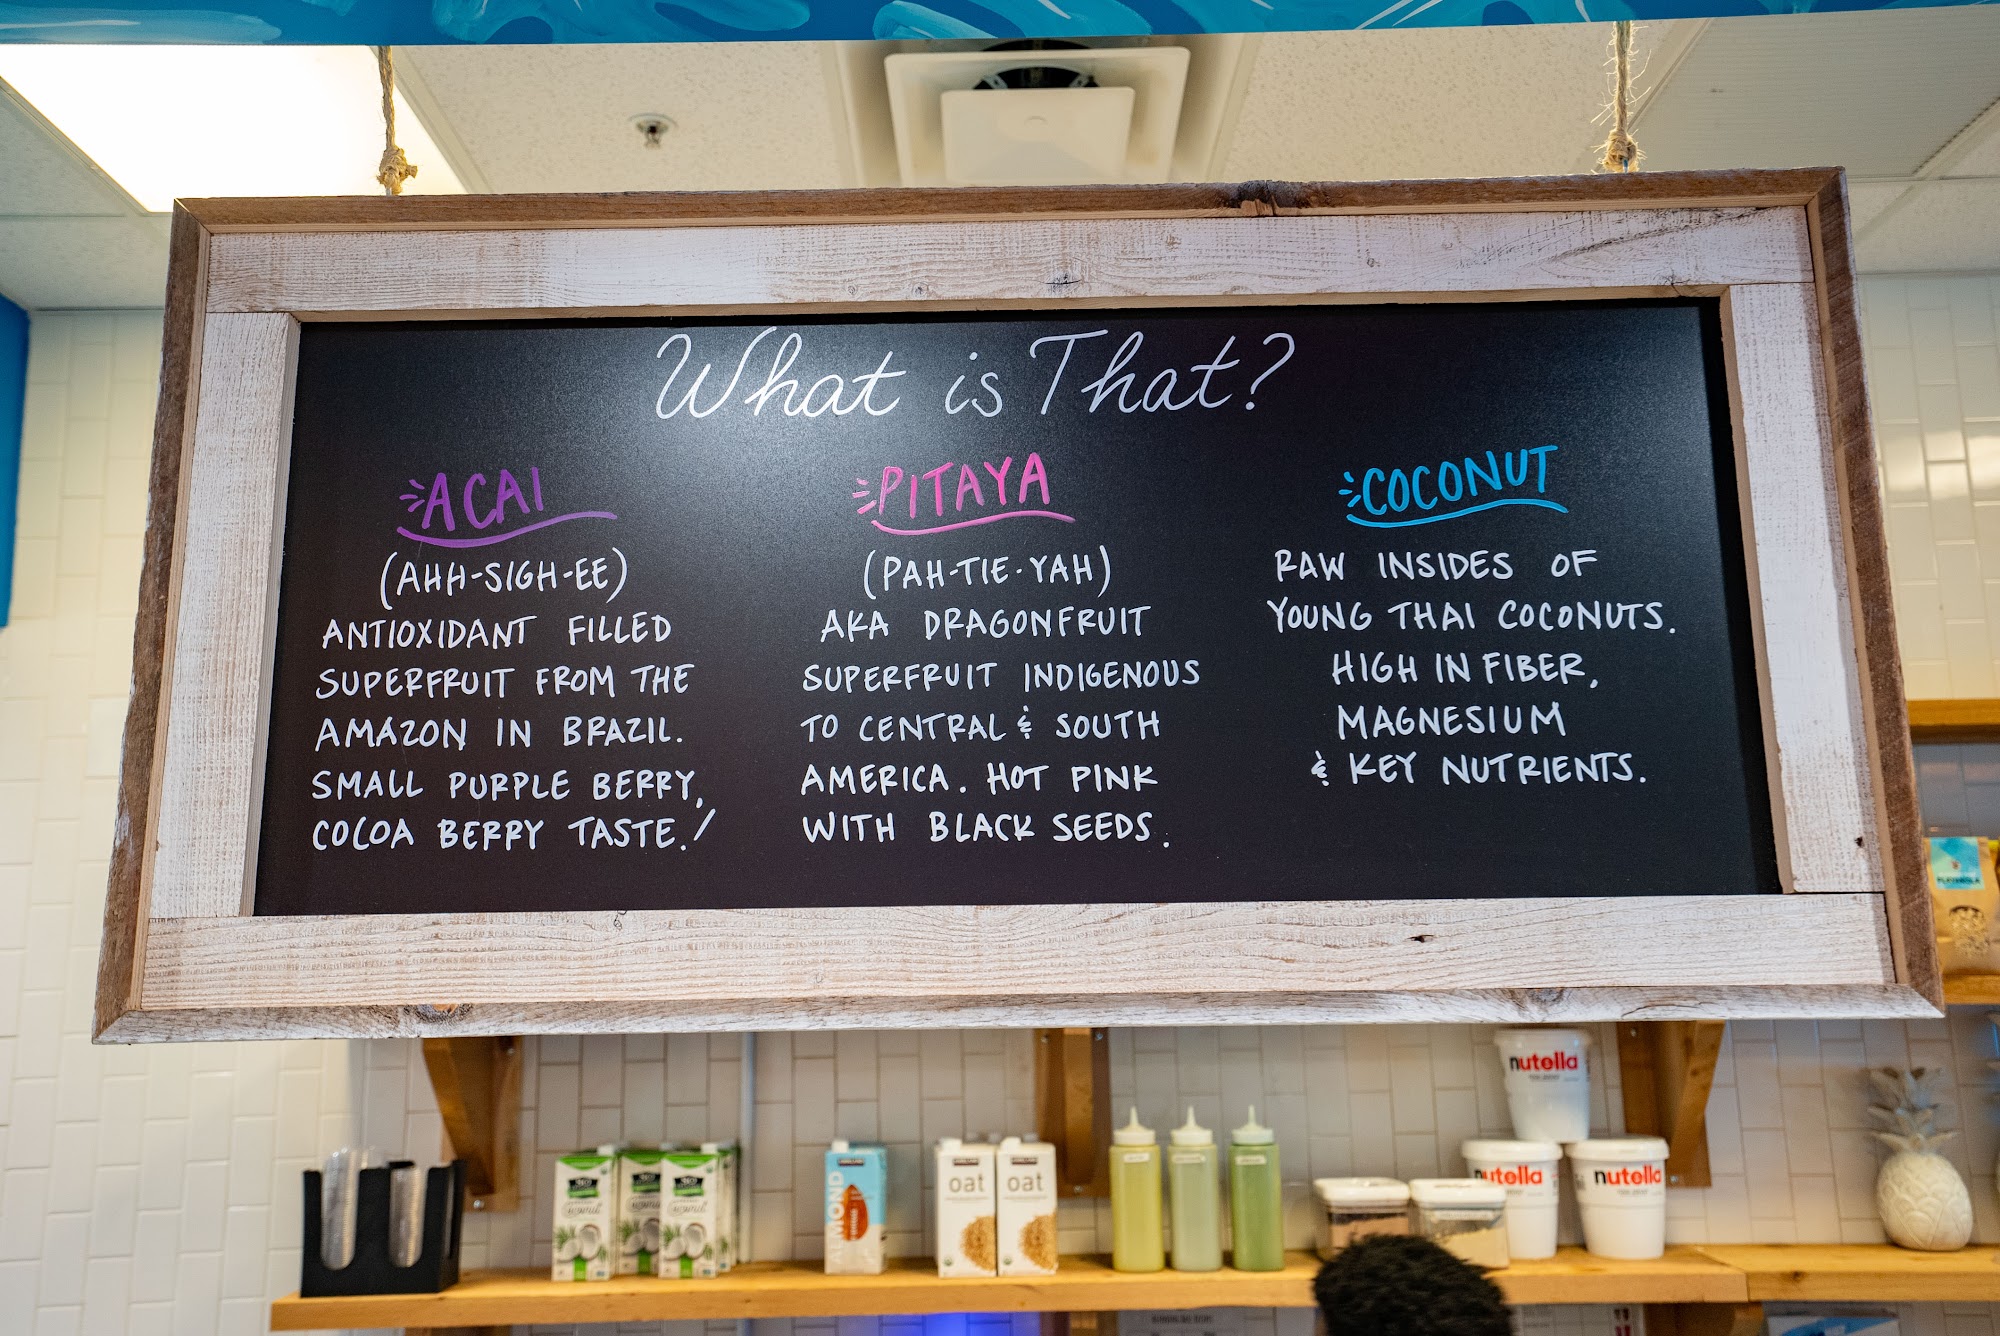 What is That?
ACAI
(AHH-SIGH-EE)
ANTIOXIDANT FILLED
SUPERFRUIT FROM THE
AMAZON IN BRAZIL.
SMALL PURPLE BERRY,
COCOA BERRY TASTE!
PITAYA
(PAH-TIE-YAH)
AKA DRAGONFRUIT
SUPERFRUIT INDIGENOUS
TO CENTRAL & SOUTH
AMERICA. HOT PINK
WITH BLACK SEEDS.
COCONUT
RAW INSIDES OF
YOUNG THAI COCONUTS.
HIGH IN FIBER,
MAGNESIUM
& KEY NUTRIENTS.
nutella
nutella
nutella
coconut
coconut
ALMOND
oat
oat